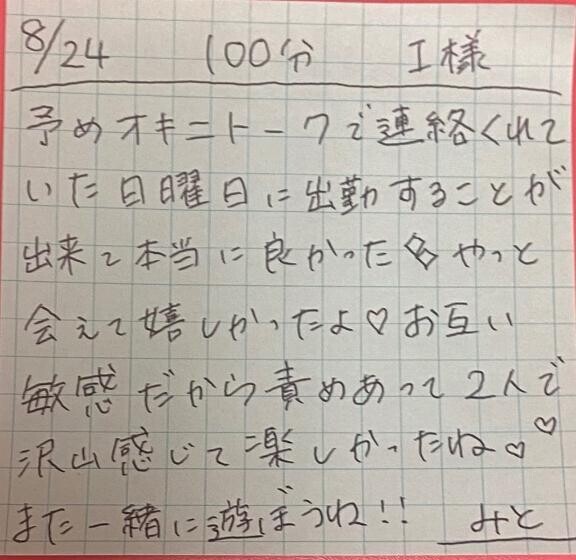 8/24 100分 I様
予めオキニトークで連絡くれて
いた日曜日に出勤することが
出来て本当に良かった やっと
会えて嬉しかったよ♡お互い
敏感だから責めあって2人で
沢山感じて楽しかったね♡♡
また一緒に遊ぼうね!! みと